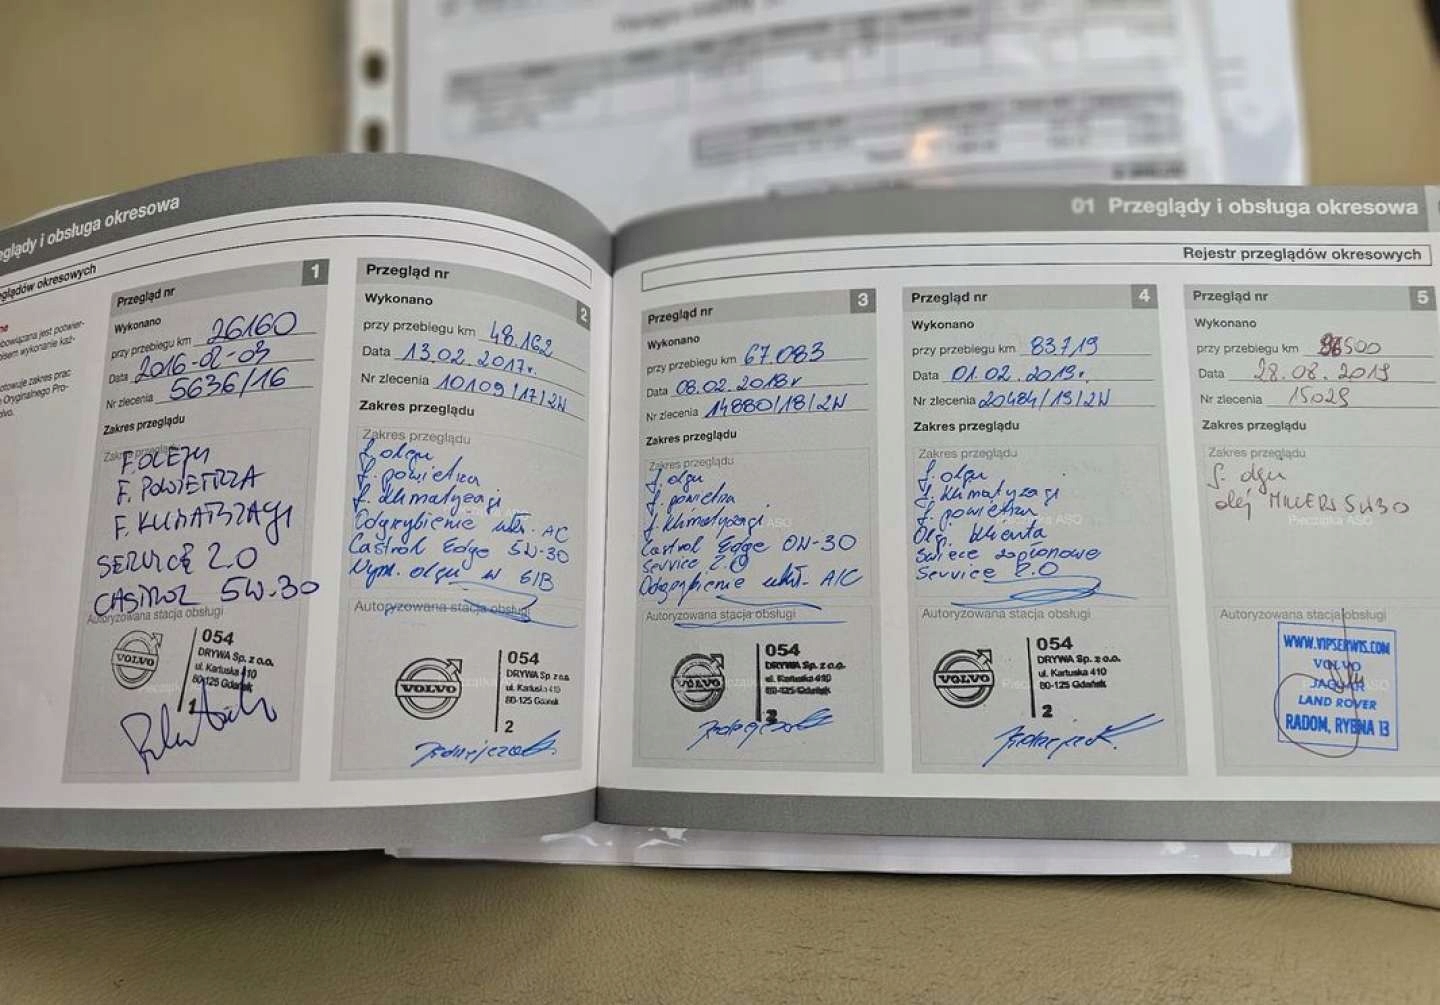 glądy i obsługa okresowa
glądów okresowych
1
Przegląd nr
Wykonano
przy przebiegu km 26160
Data 2016-02-03
Nr zlecenia 5636/16
Zakres przeglądu
Zakres przeglądu
F. OLEJU
F. POWIETRZA
F. KLIMATYZACJI
SERVICE 2.0
CASTROL 5W-30
Autoryzowana stacja obsługi
VOLVO
054
DRYWA Sp. z o.o.
ul. Kartuska 410
80-125 Gdańsk
1
Przegląd nr
2
Wykonano
przy przebiegu km 48.162
Data 13.02.2017r.
Nr zlecenia 10109/17/2W
Zakres przeglądu
Zakres przeglądu
f. oleju
f. powietrza
f. klimatyzacji
Odgrzybienie ukł. AC
Castrol Edge 5W-30
Autoryzowana stacja obsługi
VOLVO
054
DRYWA Sp. z o.o.
ul. Kartuska 410
80-125 Gdańsk
2
01 Przeglądy i obsługa okresowa
Rejestr przeglądów okresowych
3
Przegląd nr
Wykonano
przy przebiegu km 67.083
Data 08.02.2018r
Nr zlecenia 14880/18/2W
Zakres przeglądu
Zakres przeglądu
f. oleju
f. powietrza
f. klimatyzacji
Castrol Edge 0W-30
Service 2.0
Odgrzybienie ukł. A/C
Autoryzowana stacja obsługi
VOLVO
054
DRYWA Sp. z o.o.
ul. Kartuska 410
80-125 Gdańsk
2
Przegląd nr
4
Wykonano
przy przebiegu km 83719
Data 01.02.2019r.
Nr zlecenia 20484/19/2W
Zakres przeglądu
Zakres przeglądu
f. oleju
f. klimatyzacji
f. powietrza
Olej klienta
Świece zapłonowe
Service 2.0
Autoryzowana stacja obsługi
VOLVO
054
DRYWA Sp. z o.o.
ul. Kartuska 410
80-125 Gdańsk
2
Przegląd nr
5
Wykonano
przy przebiegu km 96500
Data 28.08.2019
Nr zlecenia 15029
Zakres przeglądu
Zakres przeglądu
f. oleju
olej MILLERS 5W30
Pieczątka ASO
Autoryzowana stacja obsługi
WWW.VIPSERWIS.COM
VOLVO
JAGUAR
LAND ROVER
RADOM, RYBNA 13